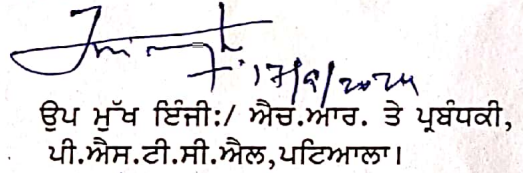 17/9/2024
ਉਪ ਮੁੱਖ ਇੰਜੀ:/ ਐਚ.ਆਰ. ਤੇ ਪ੍ਰਬੰਧਕੀ,
ਪੀ.ਐਸ.ਟੀ.ਸੀ.ਐਲ,ਪਟਿਆਲਾ।